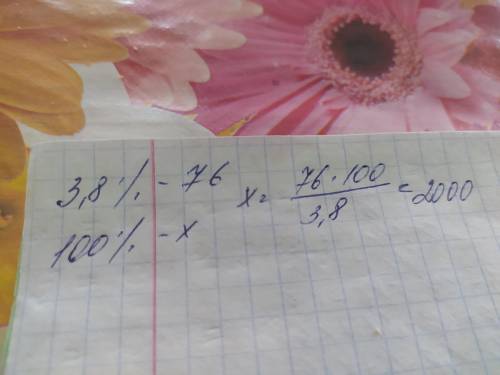 3,8% - 76
100% - x
x = 76 · 100 / 3,8 = 2000